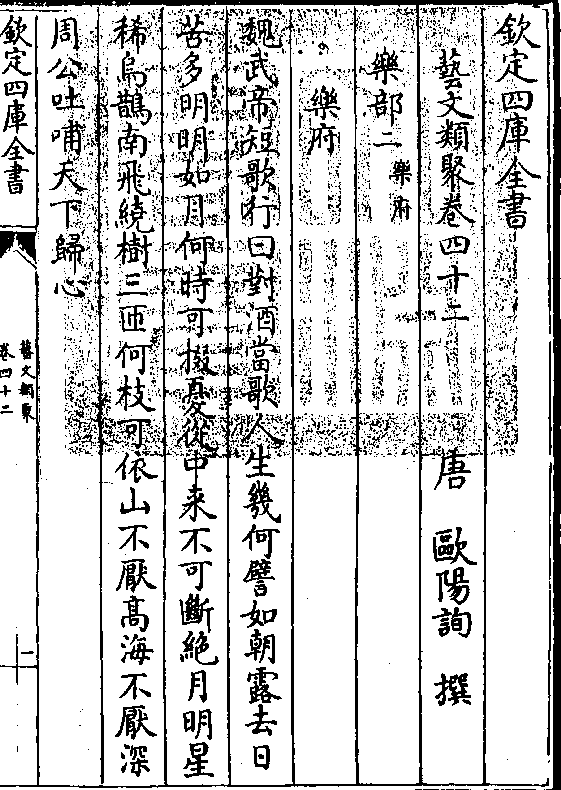 欽定四庫全書
藝文類聚卷四十二
唐 歐陽詢 撰
樂部二 樂府
樂府
魏武帝短歌行曰對酒當歌人生幾何譬如朝露去日
苦多明明如月何時可掇憂從中来不可斷絶月明星
稀烏鵲南飛繞樹三匝何枝可依山不厭髙海不厭深
周公吐哺天下歸心
欽定四庫全書
藝文類聚
卷四十二
一